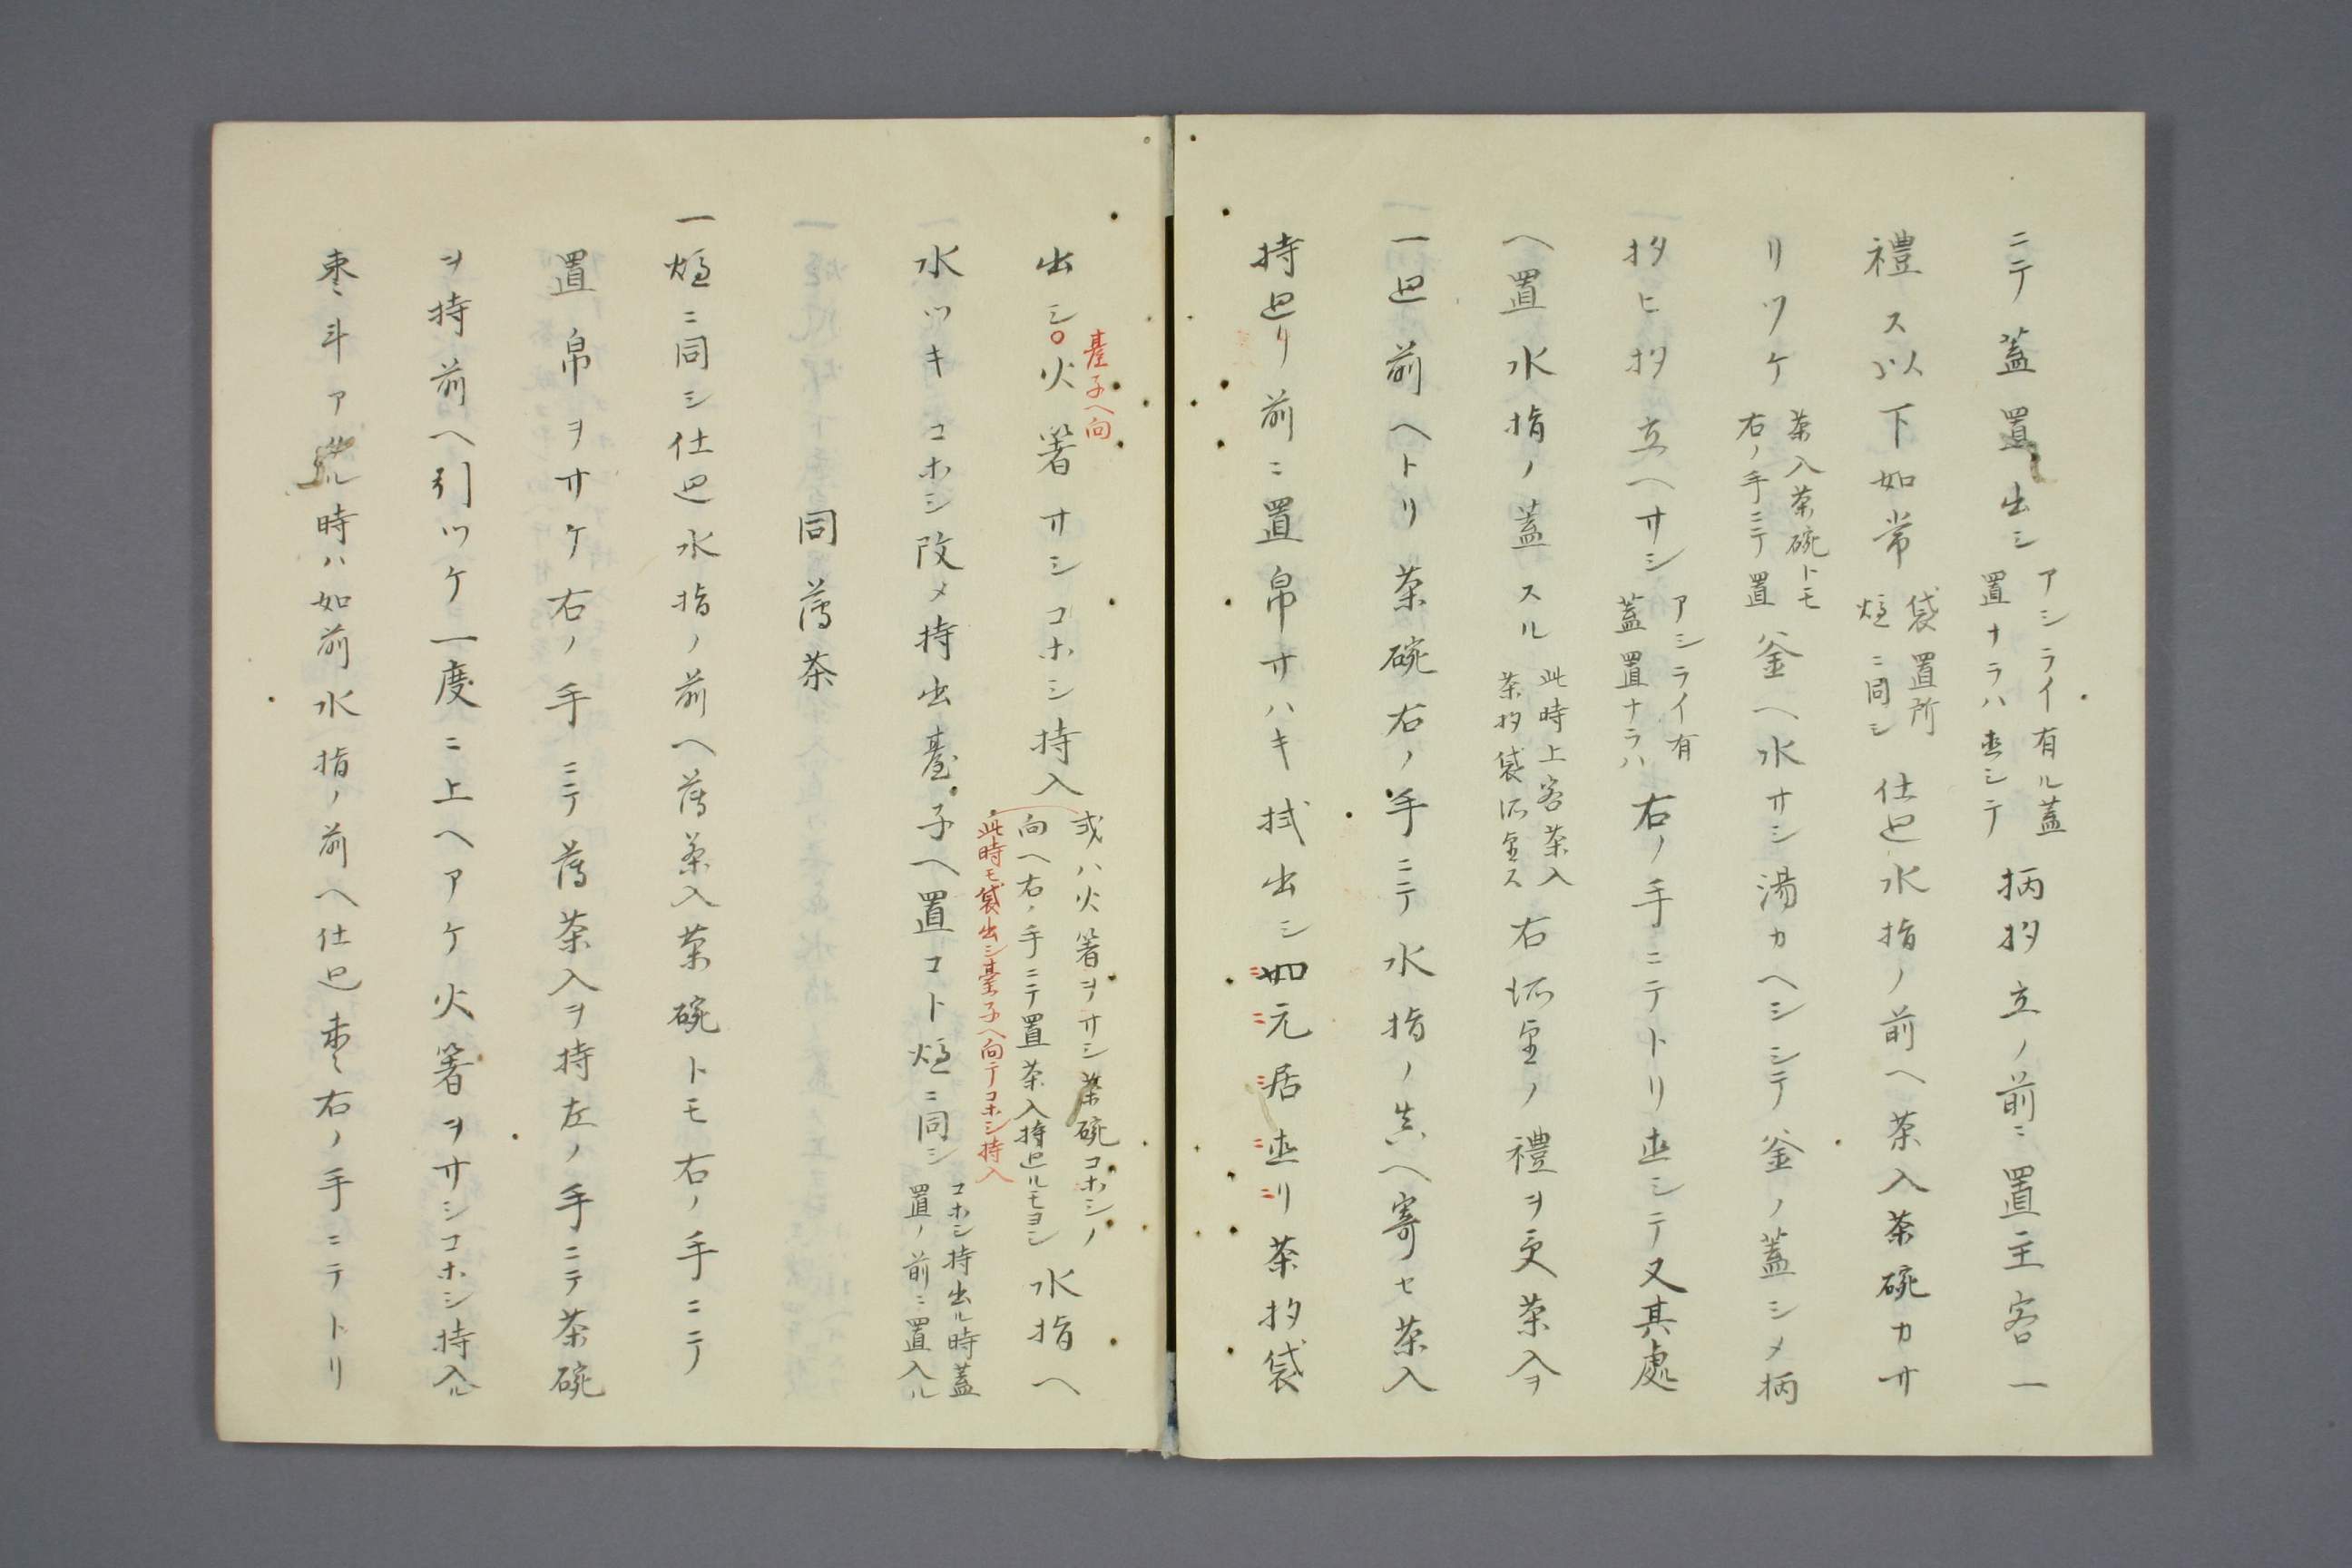 ニテ蓋置出シアシライ有ル蓋置ナラハ出シテ柄杓立ノ前ニ置主客一
禮ス以下如常袋置所爐ニ同シ仕廻水指ノ前ヘ茶入茶碗カサ
リツケ茶入茶碗トモ右ノ手ニテ置釜ヘ水サシ湯カヘシシテ釜ノ蓋シメ柄
杓ヒ杓立ヘサシアシライ有蓋置ナラハ右ノ手ニテトリ出シテ又其處
ヘ置水指ノ蓋スル此時上客茶入茶杓袋所望ス右所望ノ禮ヲ受茶入ヲ
一廻前ヘトリ茶碗右ノ手ニテ水指ノ真ヘ寄セ茶入
持廻リ前ニ置帛サハキ拭出シ如元居直リ茶杓袋
出シ○臺子ヘ向火箸サシコホシ持入或ハ火箸ヲサシ茶碗コホシノ向ヘ右ノ手ニテ置茶入持廻ルモヨシ水指ヘ
此時モ袋出シ臺子ヘ向テコホシ持入
水ツキコホシ改メ持出臺子ヘ置コト爐ニ同シコホシ持出ル時蓋置ノ前ニ置入ル
同薄茶
一爐ニ同シ仕廻水指ノ前ヘ薄茶入茶碗トモ右ノ手ニテ
置帛ヲサケ右ノ手ニテ薄茶入ヲ持左ノ手ニテ茶碗
ヲ持前ヘ引ツケ一度ニ上ヘアケ火箸ヲサシコホシ持入ル
棗斗アル時ハ如前水指ノ前ヘ仕廻棗右ノ手ニテトリ